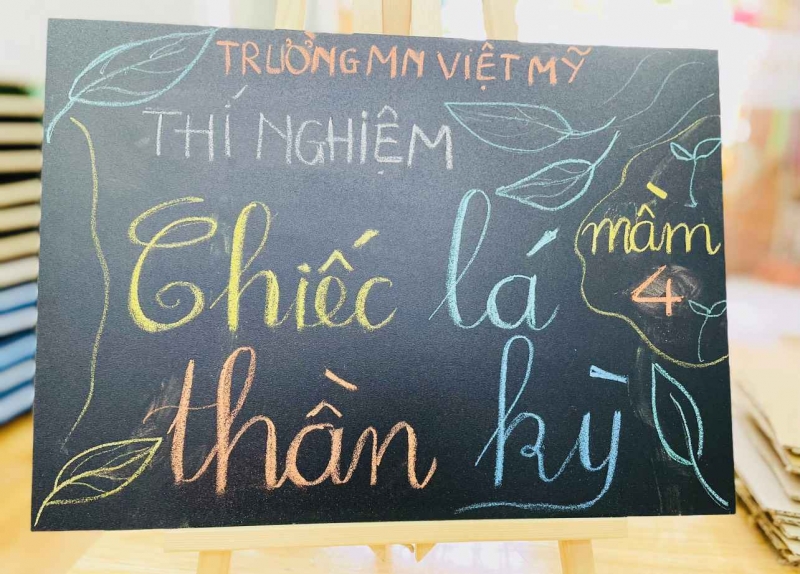 TRƯỜNG MN VIỆT MỸ
THÍ NGHIỆM
Chiếc lá
thần kỳ
mầm
4